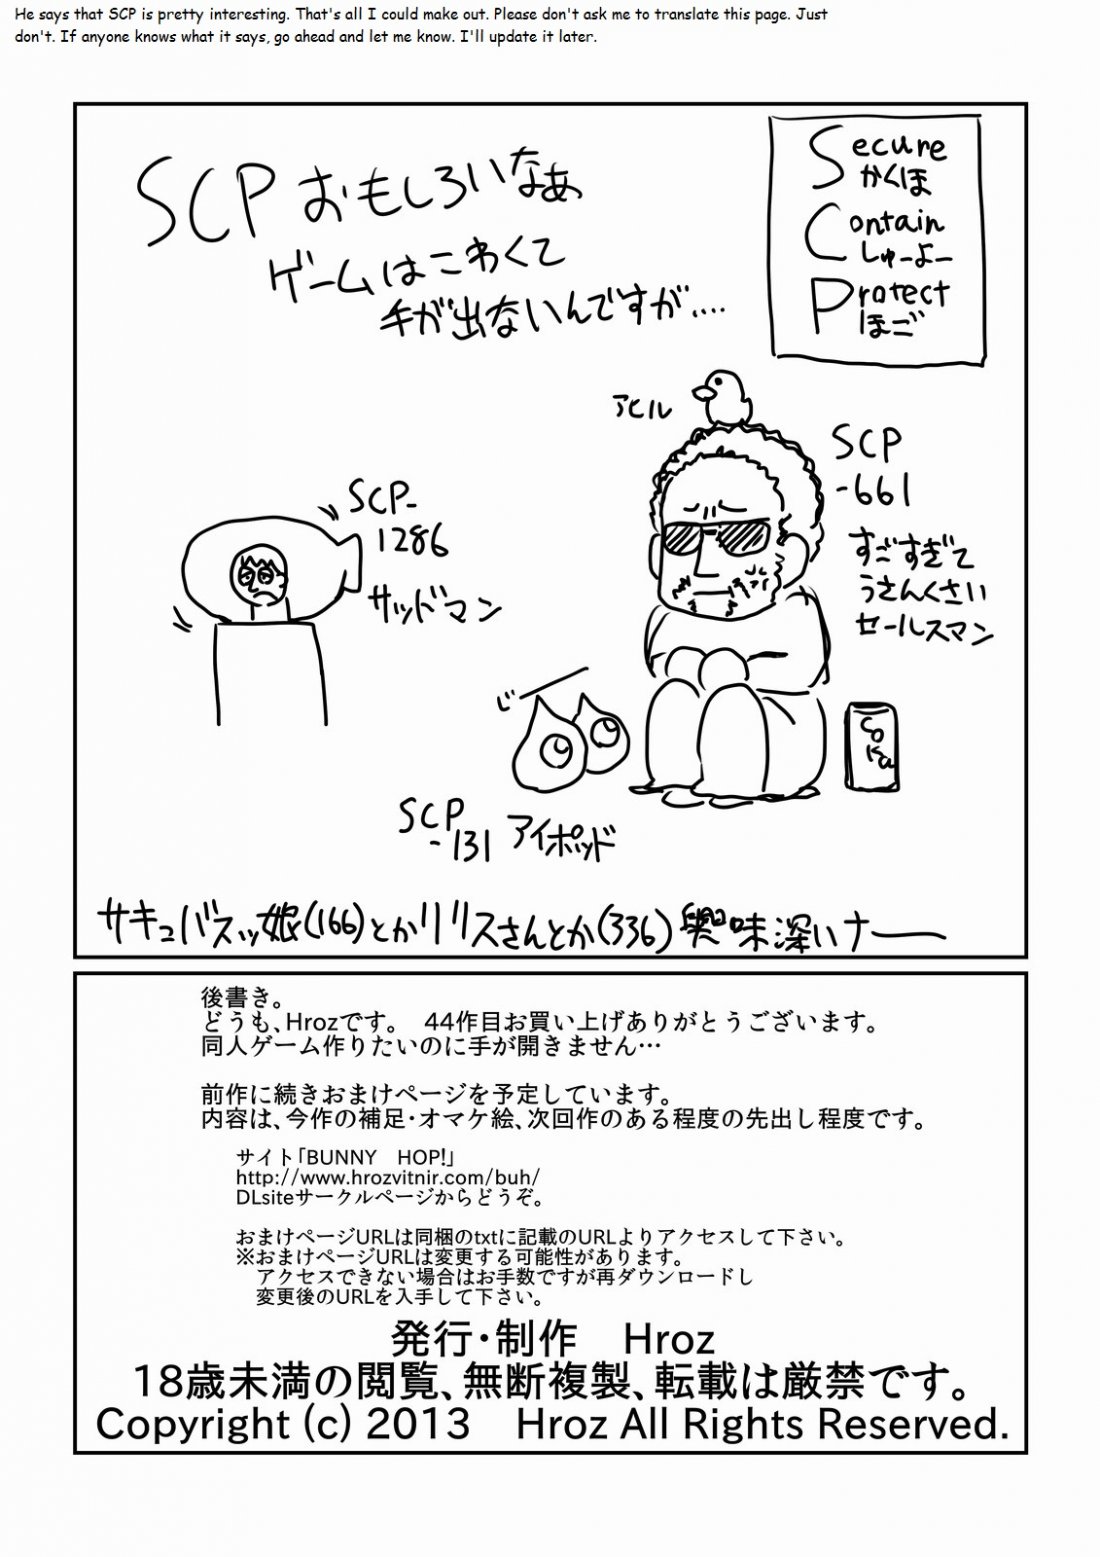 He says that SCP is pretty interesting. That's all I could make out. Please don't ask me to translate this page. Just
don't. If anyone knows what it says, go ahead and let me know. I'll update it later.
SCPおもしろいなあ
ゲームはこわくて
手が出ないんですが....
Secure
かくほ
Contain
しゅーよー
Protect
ほご
アヒル
SCP
-661
すごすぎて
うさんくさい
セールスマン
SCP-
1286
サッドマン
じー
Coka
SCP
-131 アイポッド
サキュバスッ娘(166)とかリリスさんとか(336)興味深いナー
後書き。
どうも、Hrozです。　44作目お買い上げありがとうございます。
同人ゲーム作りたいのに手が開きません…
前作に続きおまけページを予定しています。
内容は、今作の補足・オマケ絵、次回作のある程度の先出し程度です。
サイト「BUNNY　HOP!」
http://www.hrozvitnir.com/buh/
DLsiteサークルページからどうぞ。
おまけページURLは同梱のtxtに記載のURLよりアクセスして下さい。
※おまけページURLは変更する可能性があります。
アクセスできない場合はお手数ですが再ダウンロードし
変更後のURLを入手して下さい。
発行・制作　Hroz
18歳未満の閲覧、無断複製、転載は厳禁です。
Copyright (c) 2013　Hroz All Rights Reserved.